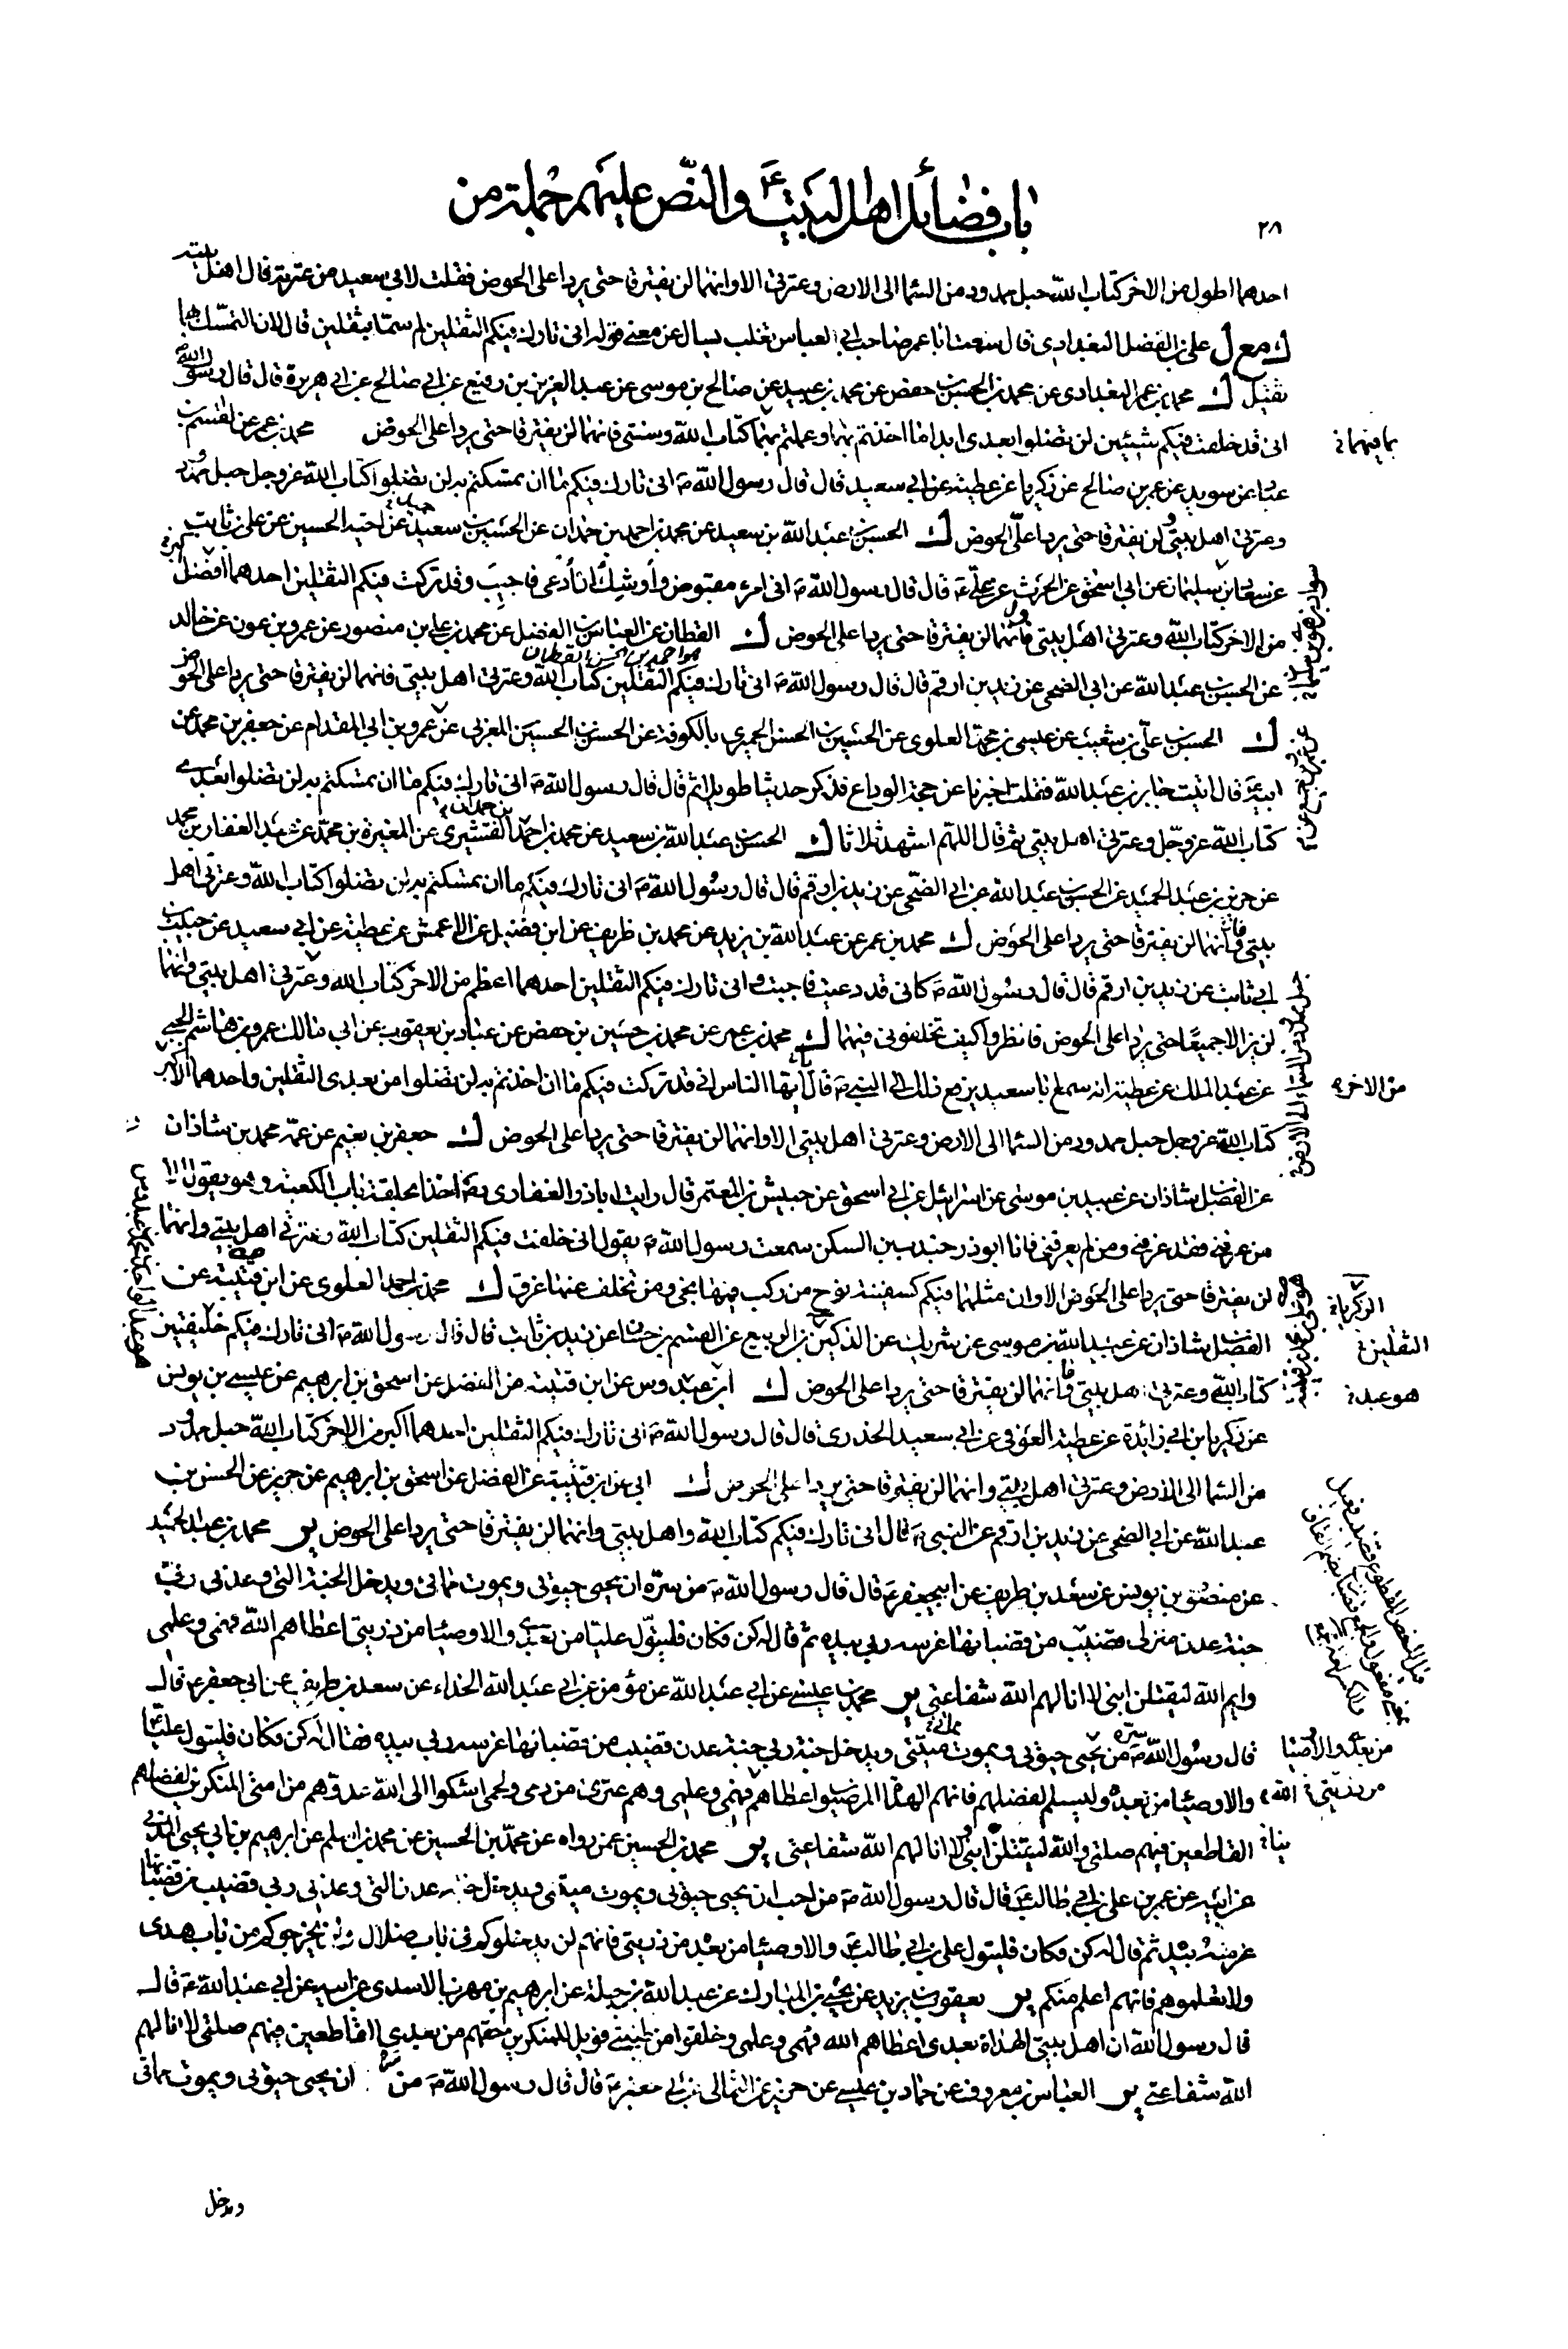 باب فضائل اهل البيت ع والنص عليهم جملة من
٢٨
احدهما اطول من الاخر كتاب الله حبل ممدود من السما الى الارض وعترتى الا وانهما لن يفترقا حتى يردا على الحوض فقلت لابى سعيد من عترته قال اهل بيته
ك مع ل على بن الفضل البغدادى قال سمعت ابا عمر صاحب ابى العباس تغلب يسال عن معنى قوله انى تارك فيكم الثقلين لم سميا بثقلين قال لان التمسك بهما
ثقيل ك محمد بن عمر البغدادى عن محمد بن الحسين بن حفص عن محمد بن عبيد عن صالح بن موسى عن عبد العزيز بن رفيع عن ابى صالح عن ابى هريرة قال قال رسول الله
انى قد خلفت فيكم شيئين لن تضلوا بعدى ابدا ما اخذتم بهما وعملتم بما كتاب الله وسنتى فانهما لن يفترقا حتى يردا على الحوض محمد بن عمر عن القسم بن
بما فيهما
عباد عن سويد عن عمر بن صالح عن زكريا عن عطية عن ابى سعيد قال قال رسول الله ص انى تارك فيكم ما ان تمسكتم به لن تضلوا كتاب الله عز وجل حبل ممدود
وعترتى اهل بيتى ولن يفترقا حتى يردا على الحوض ك الحسن بن عبد الله بن سعيد عن محمد بن احمد بن حمدان عن الحسين بن سعيد عن اخيه الحسين عن على بن ثابت
عن سعاد بن سليمان عن ابى اسحق عن الحرث عن على ع قال قال رسول الله ص انى امرء مقبوض واوشك ان ادعى فاجيب وقد تركت فيكم الثقلين احدهما افضل
من الاخر كتاب الله وعترتى اهل بيتى فانهما لن يفترقا حتى يردا على الحوض ك القطان عن العباس بن الفضل عن محمد بن على بن منصور عن عمرو بن عون عن خالد
هو احمد بن الحسن القطان
عن الحسن بن عبد الله عن ابى الضحى عن زيد بن ارقم قال قال رسول الله ص انى تارك فيكم الثقلين كتاب الله وعترتى اهل بيتى فانهما لن يفترقا حتى يردا على الحوض
ك الحسن بن على بن شعيب عن عيسى بن محمد العلوى عن الحسين بن الحسن الحميرى بالكوفة عن الحسن بن الحسين العزنى عن عمرو بن ابى المقدام عن جعفر بن محمد عن
ابيه ع قال اتيت جابر بن عبد الله فقلت اخبرنا عن حجة الوداع فذكر حديثا طويلا ثم قال قال رسول الله ص انى تارك فيكم ما ان تمسكتم به لن تضلوا بعدى
كتاب الله عز وجل وعترتى اهل بيتى ثم قال اللهم اشهد ثلاثا ك الحسن بن عبد الله بن سعيد عن محمد بن احمد بن حمدان القشيرى عن المغيرة بن محمد عن عبد الغفار بن محمد
عن حريز بن عبد الحميد عن الحسن بن عبد الله عن ابى الضحى عن زيد بن ارقم قال قال رسول الله ص انى تارك فيكم ما ان تمسكتم به لن تضلوا كتاب الله وعترتى اهل
بيتى فانهما لن يفترقا حتى يردا على الحوض ك محمد بن عمر عن عبد الله بن يزيد عن محمد بن طريف عن ابن فضيل عن الاعمش عن عطية عن ابى سعيد عن حبيب بن
ابى ثابت عن زيد بن ارقم قال قال رسول الله ص كانى قد دعيت فاجبت وانى تارك فيكم الثقلين احدهما اعظم من الاخر كتاب الله وعترتى اهل بيتى وانهما
لن يزالا جميعا حتى يردا على الحوض فانظروا كيف تخلفونى فيهما ك محمد بن عمر عن محمد بن حسين بن حفص عن عباد بن يعقوب عن ابى مالك عمرو بن هاشم الجنبى
عن عبد الملك عن عطية انه سمع ابا سعيد يرفع ذلك الى النبى ص قال ايها الناس انى قد تركت فيكم ما ان اخذتم به لن تضلوا من بعدى الثقلين واحدهما الاكبر
من الاخر
كتاب الله عز وجل حبل ممدود من السما الى الارض وعترتى اهل بيتى الا وانهما لن يفترقا حتى يردا على الحوض ك جعفر بن نعيم عن عمه محمد بن شاذان
عن الفضل بن شاذان عن عبيد بن موسى عن اسرائيل عن ابى اسحق عن حبيش بن المعتمر قال رايت اباذر الغفارى ره اخذا بحلقة باب الكعبة وهو يقول الا
من عرفنى فقد عرفنى ومن لم يعرفنى فانا ابوذر جندب بن السكن سمعت رسول الله ص يقول انى خلفت فيكم الثقلين كتاب الله وعترتى اهل بيتى وانهما
لن يفترقا حتى يردا على الحوض الا وان مثلهما فيكم كسفينة نوح من ركب فيها نجى ومن تخلف عنها غرق ك محمد بن احمد العلوى عن ابن قتيبة عن
الفضل بن شاذان عن عبيد الله بن موسى عن شريك عن الركين بن الربيع عن القسم بن حسان عن زيد بن ثابت قال قال رسول الله ص انى تارك فيكم خليفتين
الثقلين
كتاب الله وعترتى اهل بيتى فانهما لن يفترقا حتى يردا على الحوض ك ابن عبدوس عن ابن قتيبة عن الفضل عن اسحق بن ابراهيم عن عيسى بن يونس
هو عبد
عن زكريا بن ابى زائدة عن عطية العوفى عن ابى سعيد الخدرى قال قال رسول الله ص انى تارك فيكم الثقلين احدهما اكبر من الاخر كتاب الله حبل ممدود
من السما الى الارض وعترتى اهل بيتى وانهما لن يفترقا حتى يردا على الحوض ك ابى عن ابن قتيبة عن الفضل عن اسحق بن ابراهيم عن جرير عن الحسن بن
عبد الله عن ابى الضحى عن زيد بن ارقم عن النبى ص قال انى تارك فيكم كتاب الله واهل بيتى وانهما لن يفترقا حتى يردا على الحوض ير محمد بن عبد الحميد
عن منصور بن يونس عن سعد بن طريف عن ابى جعفر ع قال قال رسول الله ص من سره ان يحيى حيوتى ويموت مماتى ويدخل الجنة التى وعدنى ربى
جنة عدن منزلى قضيب من قضبانها غرسه ربى بيده ثم قال له كن فكان فليتول عليا من بعدى والاوصيا من ذريتى اعطاهم الله فهمى وعلمى
وايم الله ليقتلن ابنى لا انالهم الله شفاعتى ير محمد بن عيسى عن ابى عبد الله عن مؤمن عن ابى عبد الله الحذاء عن سعد بن طريف عن ابى جعفر ع قال
قال رسول الله ص من سره يحيى حيوتى ويموت ميتتى ويدخل جنة ربى جنة عدن قضيب من قضبانها غرسه ربى بيده فقال له كن فكان فليتول عليا
من بعده والاوصيا
والاوصيا من بعده وليسلم لفضلهم فانهم الهداة المرضيوا اعطاهم فهمى وعلمى وهم عترتى من دمى ولحمى اشكوا الى الله عدوهم من امتى المنكرين لفضلهم
من ذريتى الله
القاطعين فيهم صلتى والله ليقتلن ابنى لا انالهم الله شفاعتى ير محمد بن الحسين عمن رواه عن محمد بن الحسين عن محمد بن اسلم عن ابراهيم بن ابى يحيى المدنى
عن ابيه عن عمر بن على بن ابى طالب ع قال قال رسول الله ص من احب ان يحيى حيوتى ويموت ميتتى ويدخل جنة عدن التى وعدنى ربى قضيب من قضبانها
غرسه بيده ثم قال له كن فكان فليتول على بن ابى طالب ع والاوصيا من بعده من ذريتى فانهم لن يدخلوكم فى باب ضلال ولن يخرجوكم من باب هدى
ولا تعلموهم فانهم اعلم منكم ير يعقوب بن يزيد عن يحيى بن المبارك عن عبد الله بن جبلة عن ابراهيم بن مهزم الاسدى عن ابيه عن ابى عبد الله ع قال
قال رسول الله ان اهل بيتى الهداة بعدى اعطاهم الله فهمى وعلمى وخلقوا من طينتى فويل للمنكرين حقهم من بعدى القاطعين فيهم صلتى لا انالهم
الله شفاعتى ير العباس بن معروف عن حماد بن عيسى عن حريز عن الثمالى عن ابى جعفر ع قال قال رسول الله ص من سره ان يحيى حيوتى ويموت مماتى
ويدخل